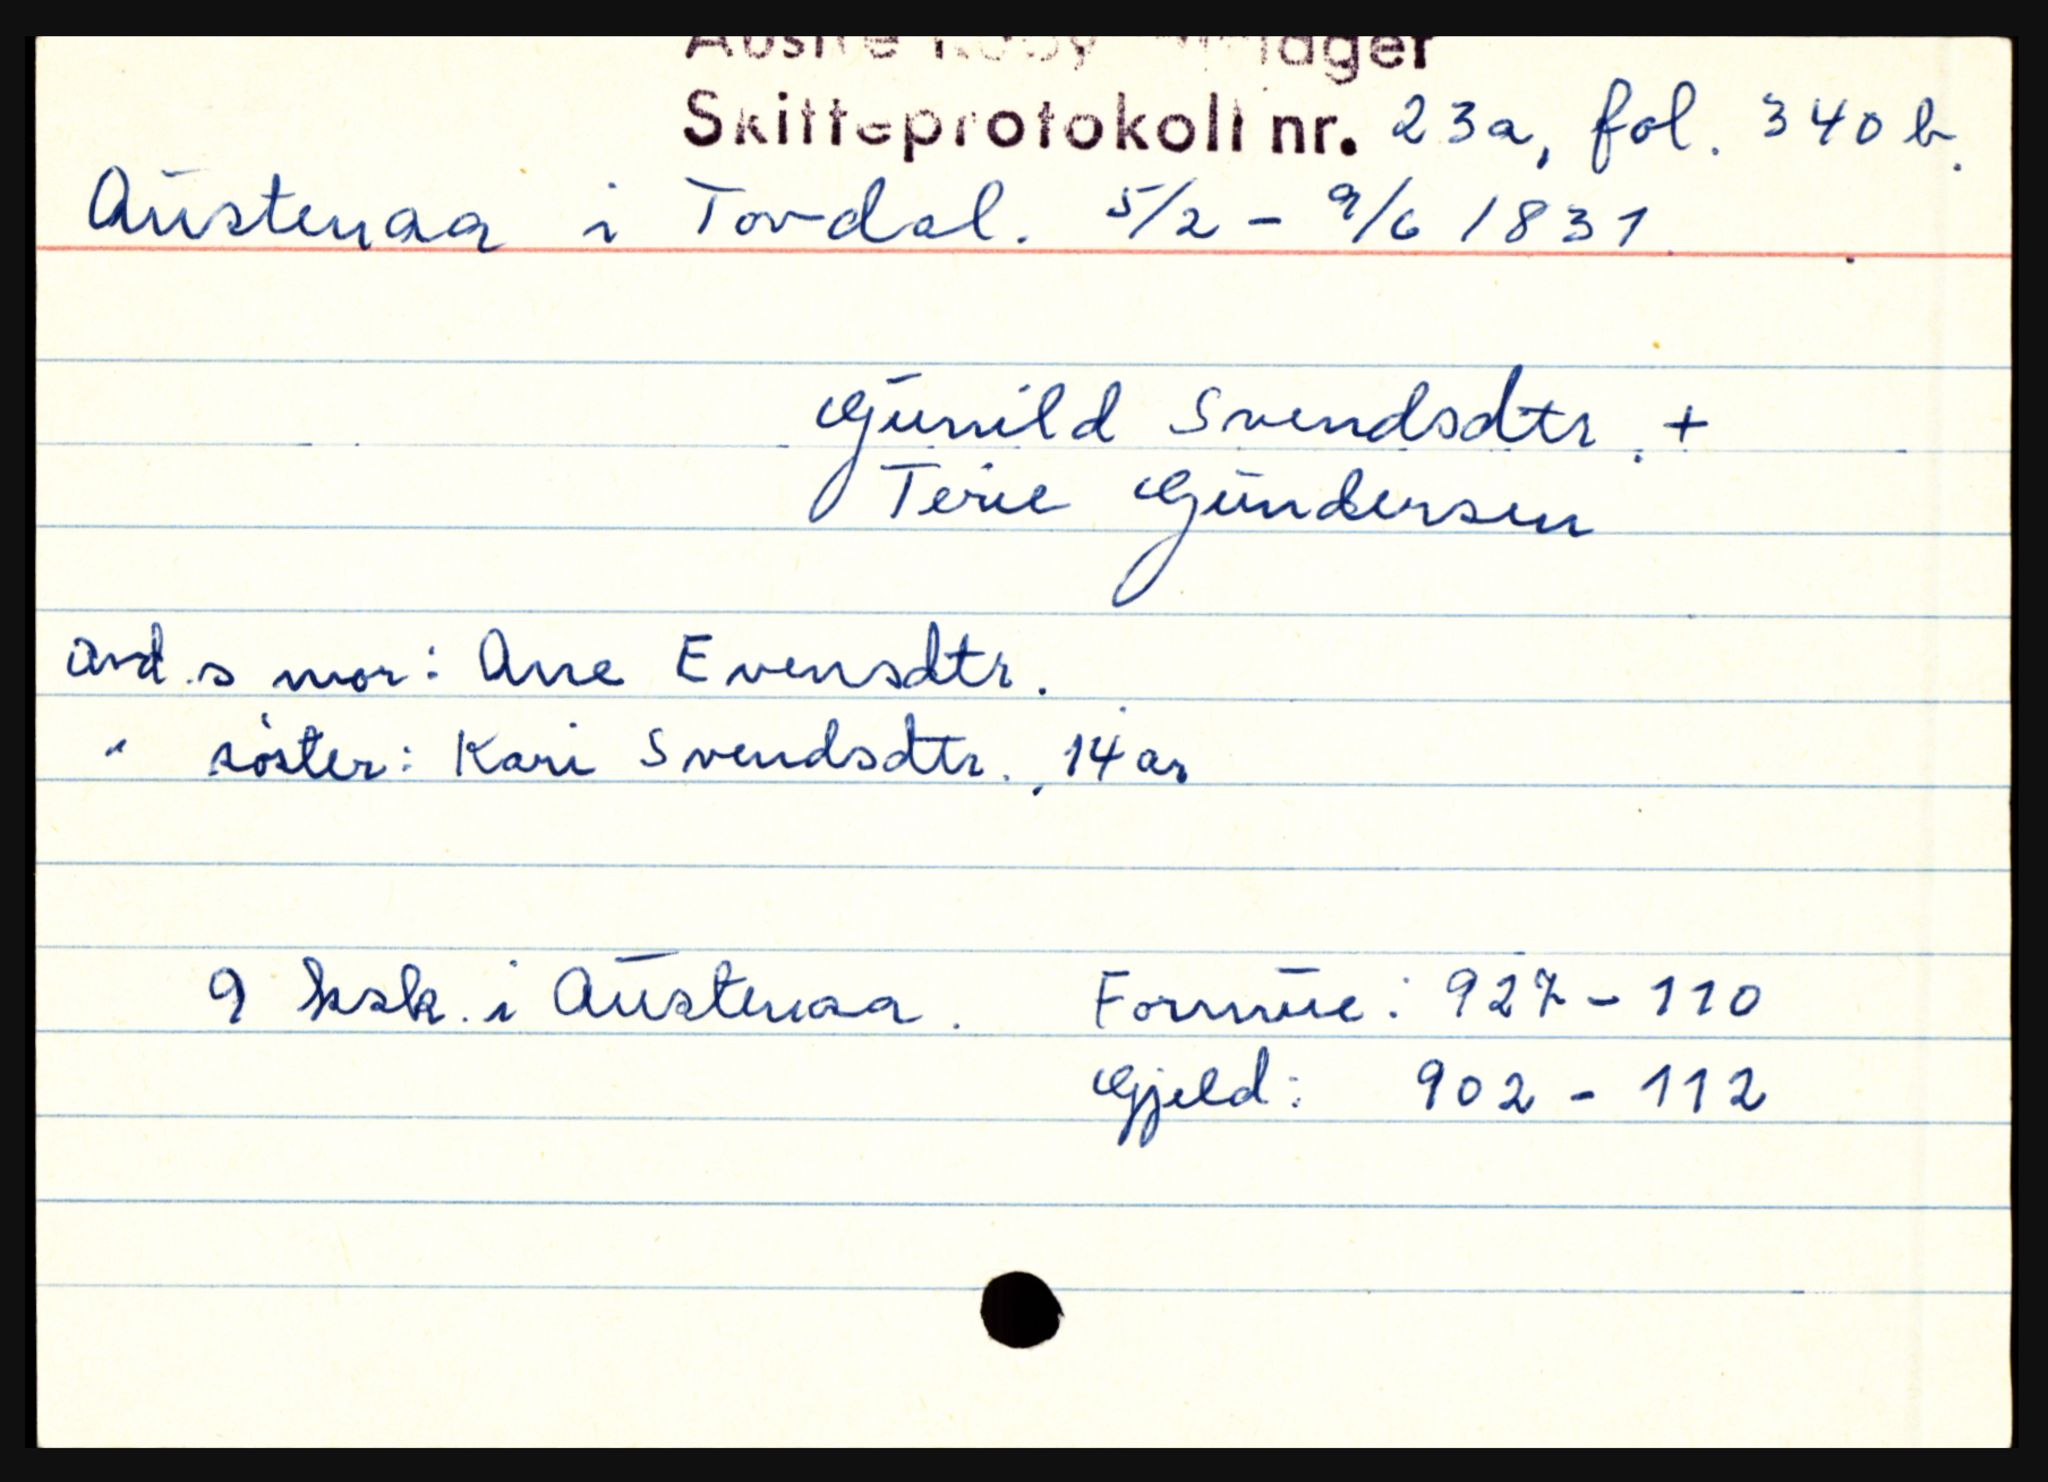 Skifteprotokoll nr. 23a, fol. 340 b.
Austenaa i Tovdal. 5/2 - 9/6 1831
Gunild Svendsdtr. +
Terie Gundersen
avd.s mor: Ane Evensdtr.
" söster: Kari Svendsdtr., 14 år
9 ksk. i Austenaa. Formue: 927 - 110
Gjeld: 902 - 112